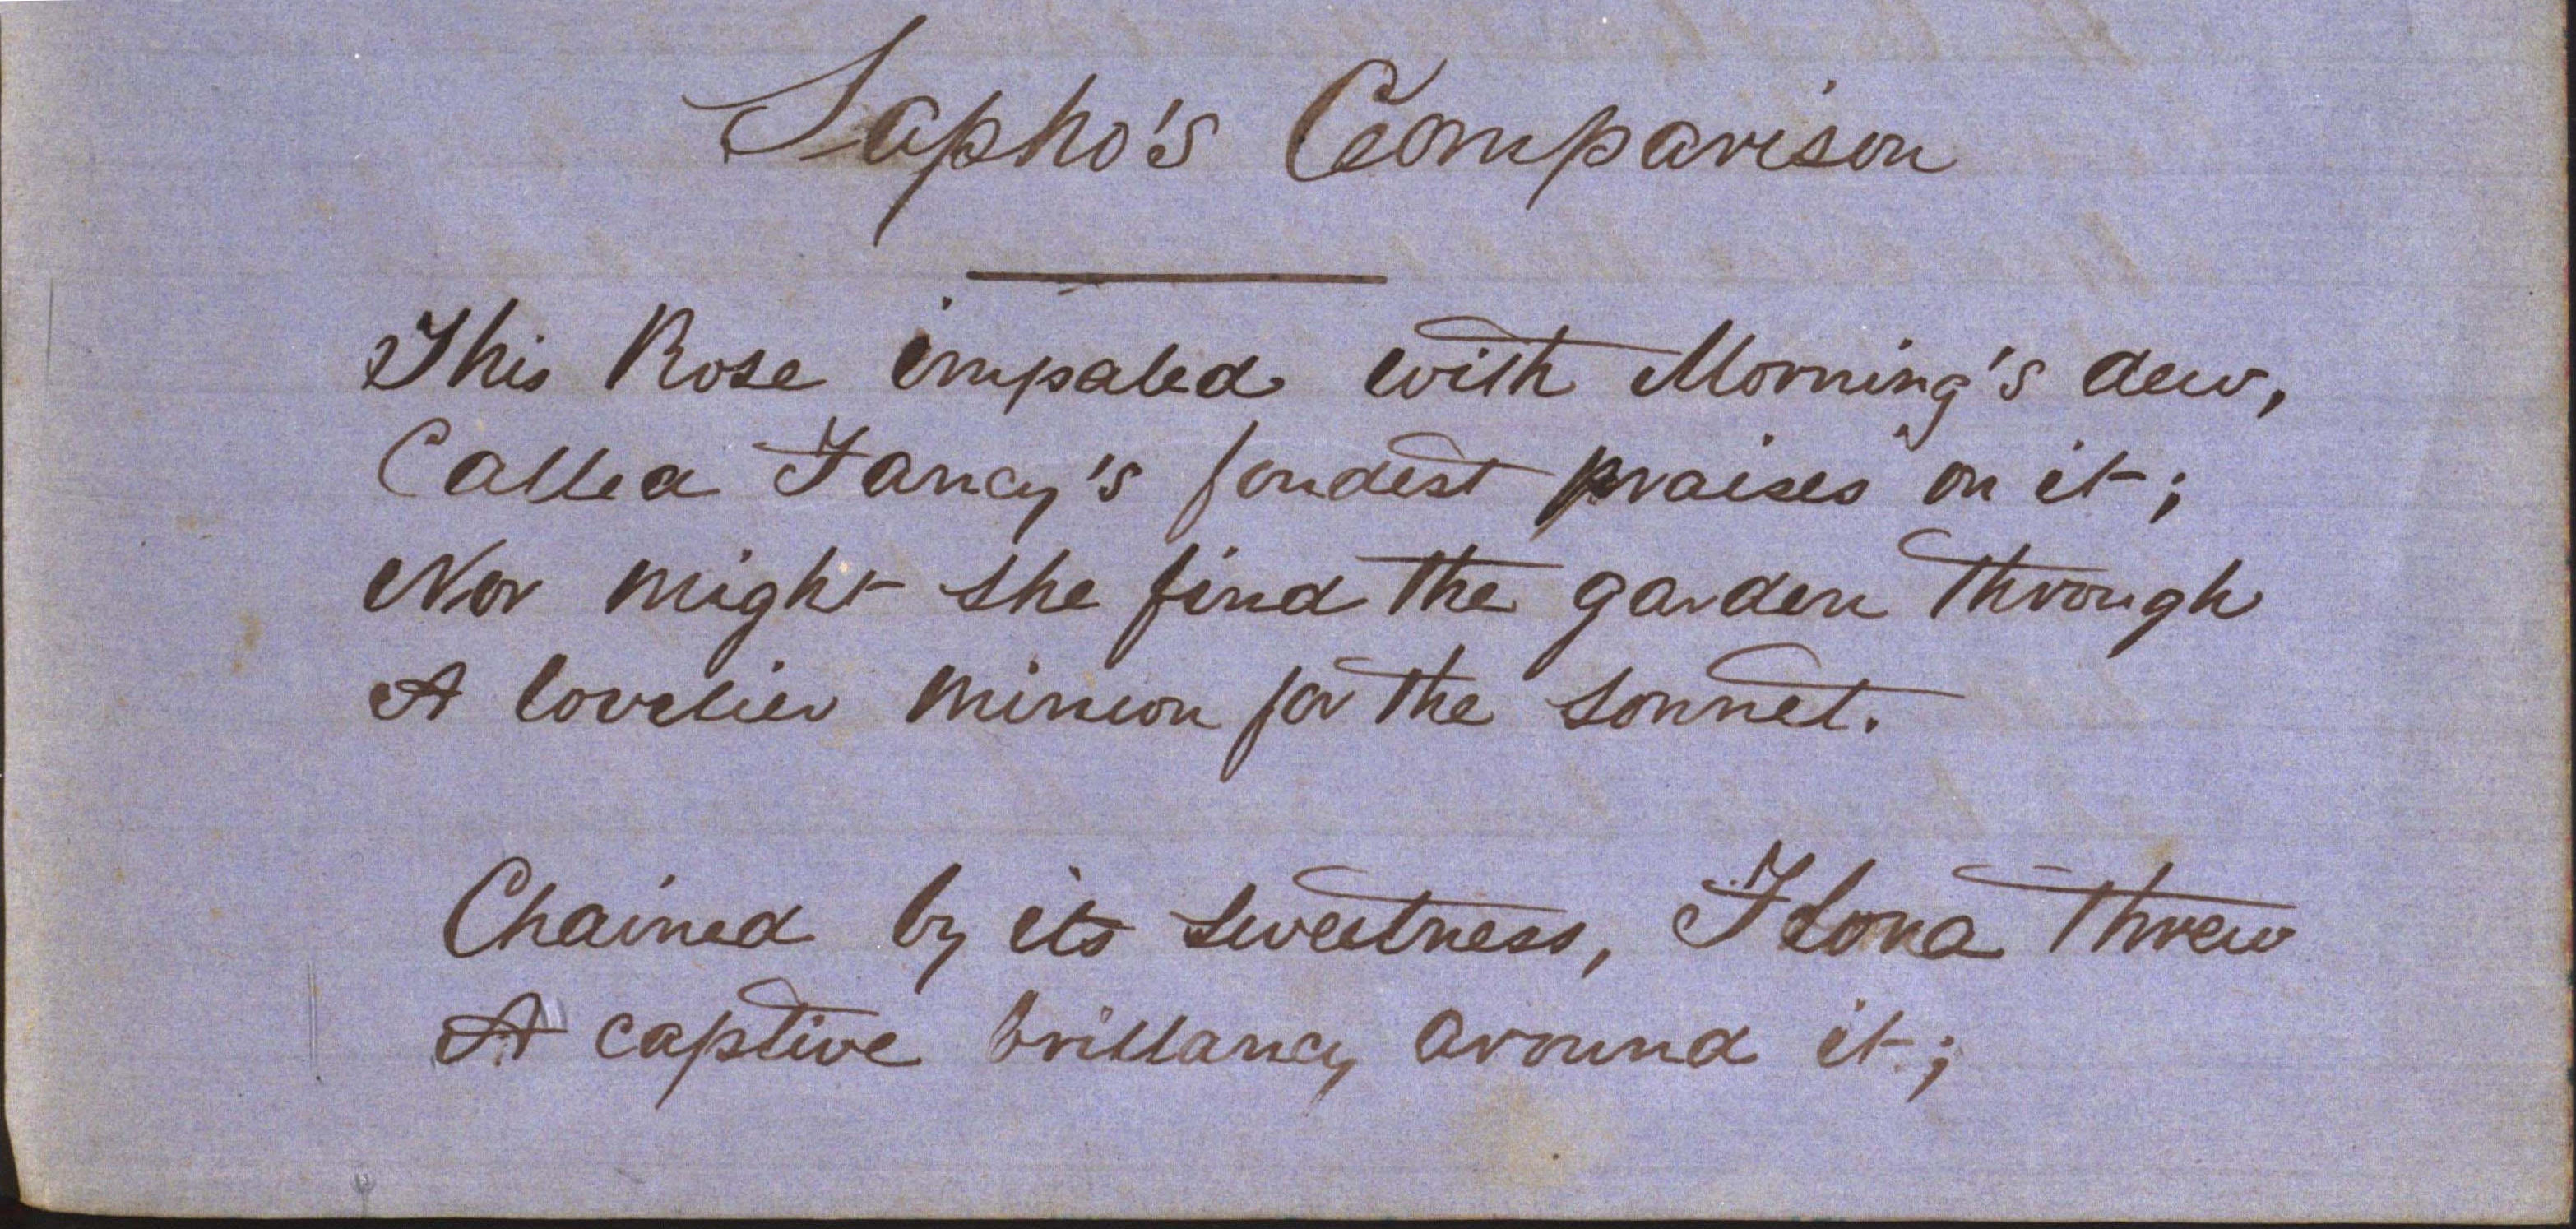 Sapho's Comparison
This Rose impaled with Morning's dew,
Called Fancy's fondest praises on it;
Nor might she find the garden through
A lovelier minion for the sonnet.
Chained by its sweetness, Flora threw
A captive brillancy around it;